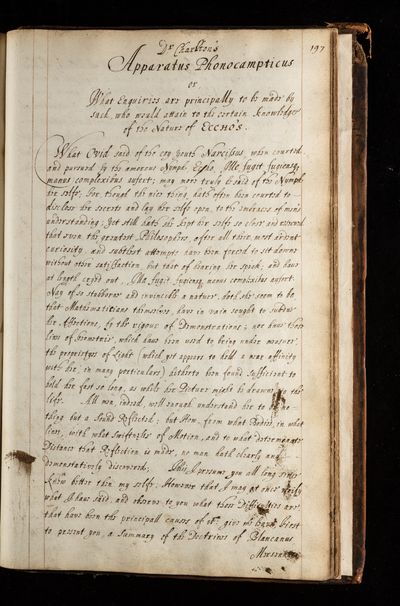 197
Dr Charlton's
Apparatus Phonocampticus
or
What Enquiries are principally to be made by
such, who would attain to the certain knowledge
of the Nature of ECCHO'S.
What Ovid said of the coy youth Narcissus, when courted,
and pursued by the amorous Nymph Eccho, Ille fugit, fugiensq,
manus complexibus aufert; may more truly be said of the Nymph
her selfe. For, though this nice thing hath often been courted to
disclose her secrets and lay her selfe open, to the embraces of men's
understanding; Yet still hath she kept her selfe so close and reserved
that even the greatest Philosophers, after all their most ardent
curiosity, and subtlest attempts have been forced to sit downe
without other satisfaction, but that of hearing her speak, and have
at length cryed out, Illa fugit, fugiensq, manus complexibus aufert.
Nay of so stubborne and invincible a nature hath she seem to be,
that Mathematitians themselves, have in vain sought to subdue
her Affections, by the rigour of Demonstrations; nor have those
lines of Geometrie, which have been used to bring under measure,
the proprietyes of Light (which yet appears to hold a near affinity
with her, in many particulars) hitherto been found sufficient to
hold her fast so long, as while her Picture might be drawne to the
life. All men, indeed, well enough understand her to be no-
thing but a Sound Reflected; but How, from what Bodies, in what
lines, with what Swiftness of Motion, and to what determinate
Distance that Reflection is made, no man hath clearly and
demonstratively discovered. This, I presume you all long since
knew better then my selfe. However that I may at once verify
what I have said, and observe to you what those Difficulties are
that have been the principall causes of it: give me leave
to present you a Summary of the Doctrines of Blancanus
Mersennus